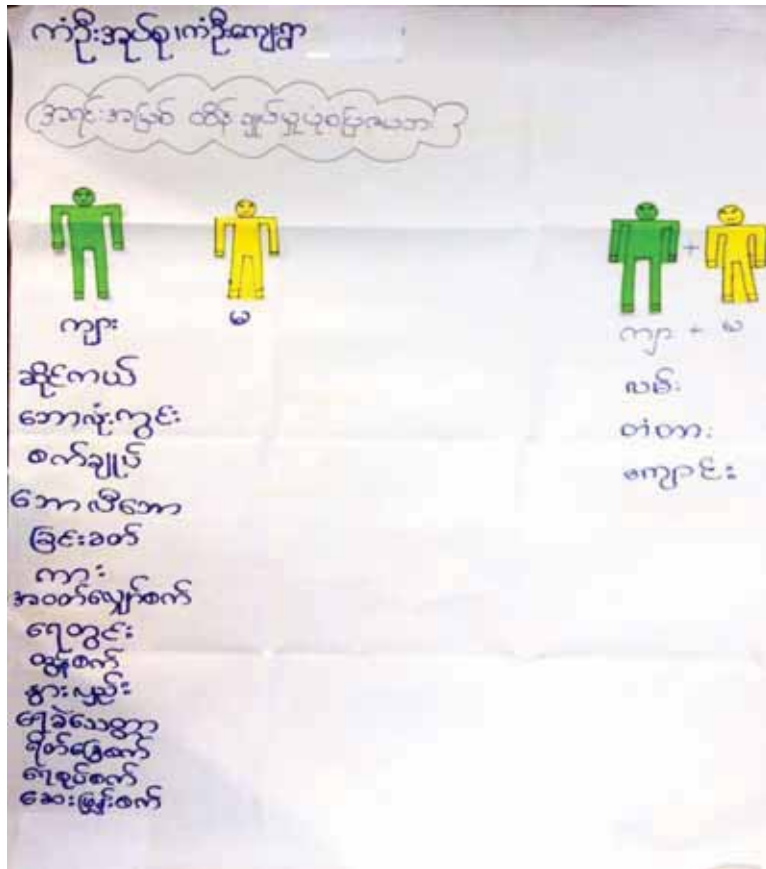 ကံဦးအုပ်စု၊ကံဦးကျေးရွာ
အရင်းအမြစ် ထိန်းချုပ်မှုပုံစံပြဇယား
ကျား
မ
ကျား + မ
ဆိုင်ကယ်
ဘောလုံးကွင်း
စက်ချုပ်
ဘောလီဘော
ခြင်းခတ်
ကား
အဝတ်လျှော်စက်
ရေတွင်း
ထွန်စက်
နွားလှည်း
ရေခဲသေတ္တာ
ရိတ်ခြွေစက်
ရေစုပ်စက်
ဆေးဖြန်းစက်
လမ်း
တံတား
ကျောင်း